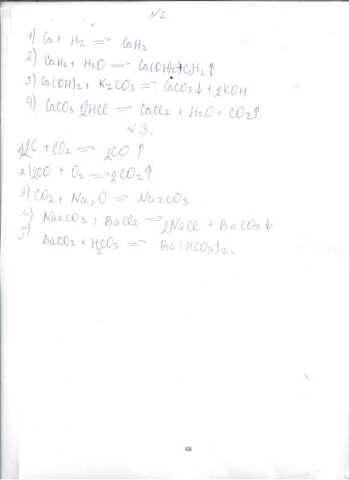 N 2
1) Ca + H2 => CaH2
2) CaH2 + H2O => Ca(OH)2 + H2↑
3) Ca(OH)2 + K2CO3 => CaCO3↓ + 2KOH
4) CaCO3 2HCl => CaCl2 + H2O + CO2↑
N 3.
1) C + CO2 => 2CO↑
2) 2CO + O2 => 2CO2↑
3) CO2 + Na2O => Na2CO3
4) Na2CO3 + BaCl2 => 2NaCl + BaCO3↓
5) BaCO3 + H2CO3 => Ba(HCO3)2.